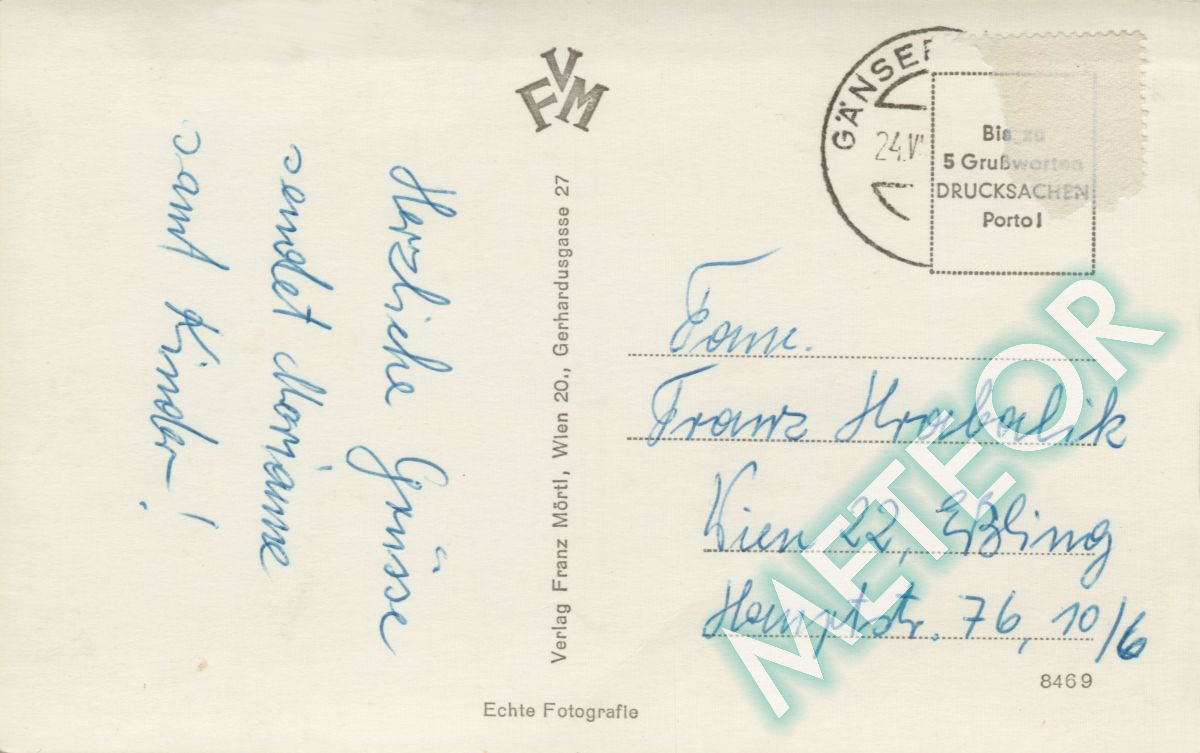 Herzliche Grüsse
sendet Marianne
samt Kinder!
FVM
Verlag Franz Mörtl, Wien 20., Gerhardusgasse 27
Echte Fotografie
GÄNSER
24.VI
Bis zu
5 Grußworten
DRUCKSACHEN
Porto!
Fam.
Franz Hrabalik
Wien 22, Eßling
Hauptstr. 76, 10/6
8469
METEOR